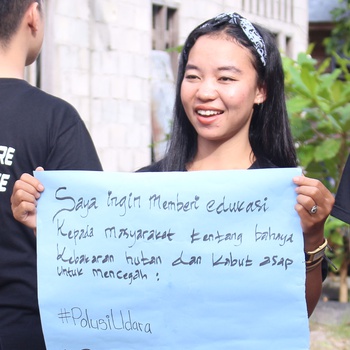 RE
Saya ingin memberi edukasi
Kepada Masyarakat tentang bahaya
Kebakaran hutan dan Kabut asap
untuk mencegah :
#PolusiUdara